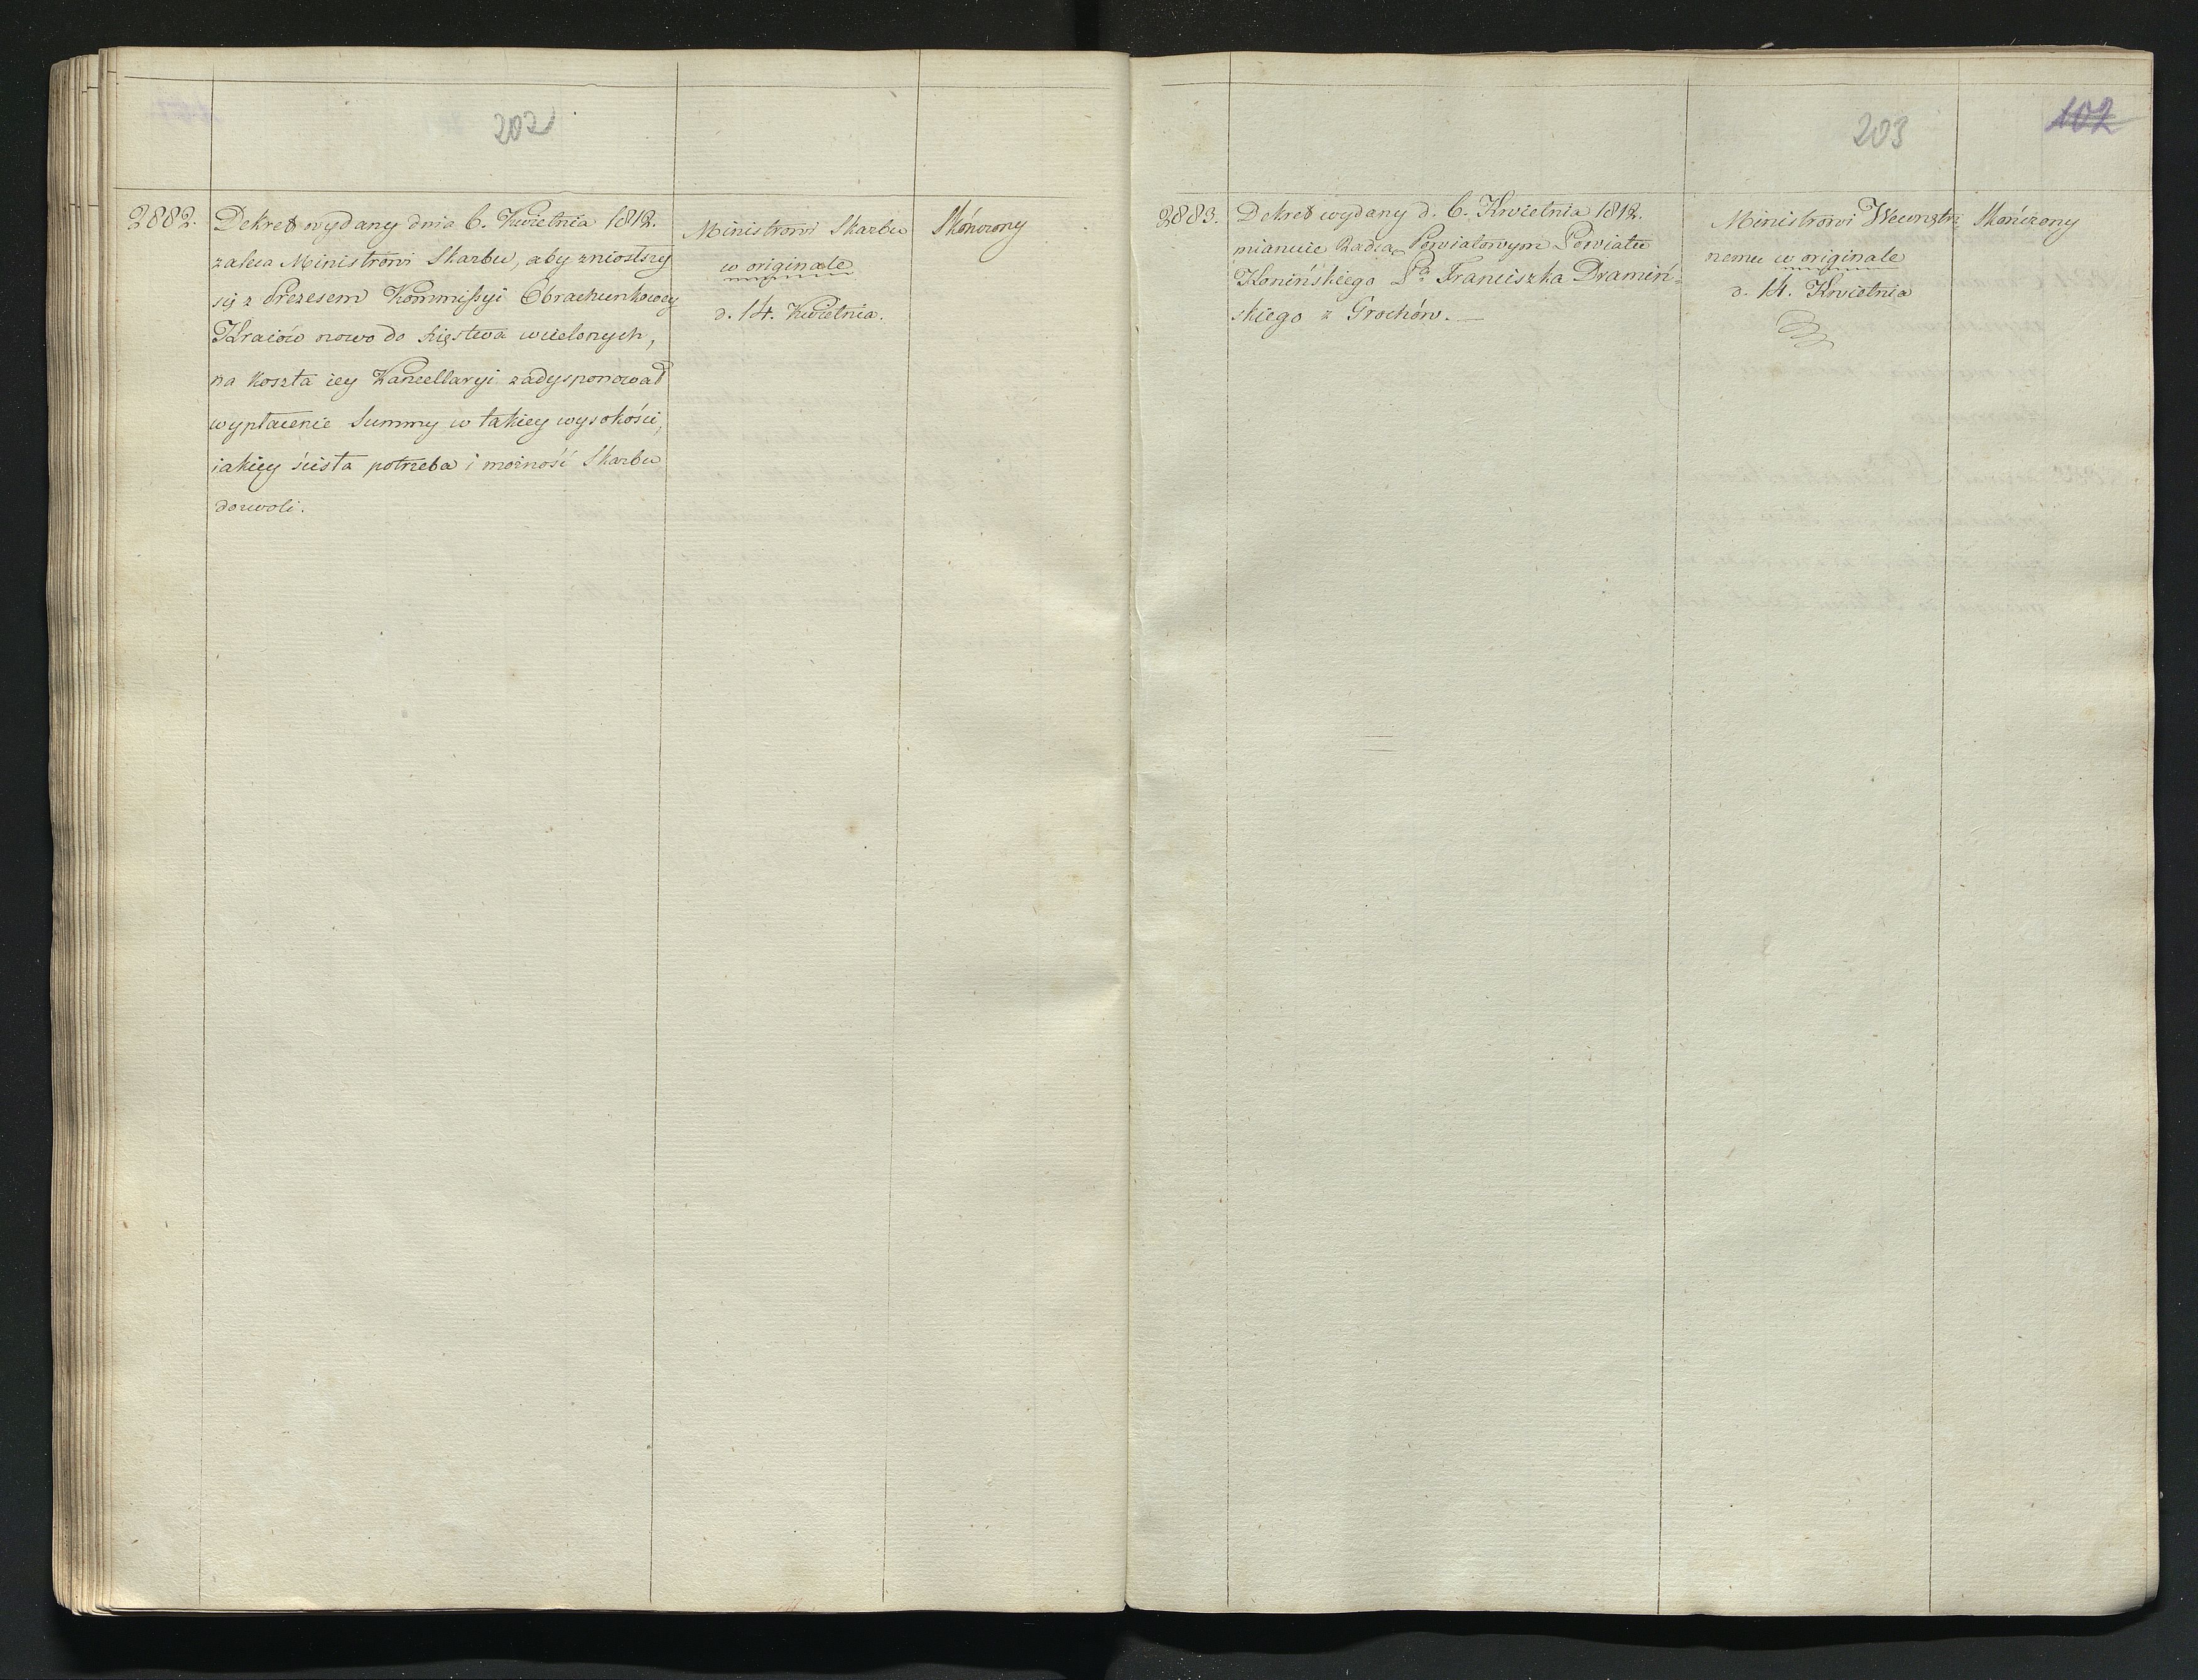 202
2882. Dekret wydany dnia 6. Kwietnia 1812.
zaleca Ministrowi Skarbu, aby zniosłszy
się z Prezesem Kommissyi Obrachunkowey
Kraiów nowo do Xięstwa wcielonych,
na koszta iey Kancellaryi zadysponował
wypłacenie Summy w takiey wysokości,
iakiey ścisła potrzeba i możność Skarbu
dozwoli.
Ministrowi Skarbu
w originale
d. 14. Kwietnia.
Skończony
203
102
2883. Dekret wydany d. 6. Kwietnia 1812.
mianuie Radcą Powiatowym Powiatu
Konińskiego Pa Franciszka Dramiń-
skiego z Grochów. —
Ministrowi Wewnętrz
nemu w originale
d. 14. Kwietnia
Skończony